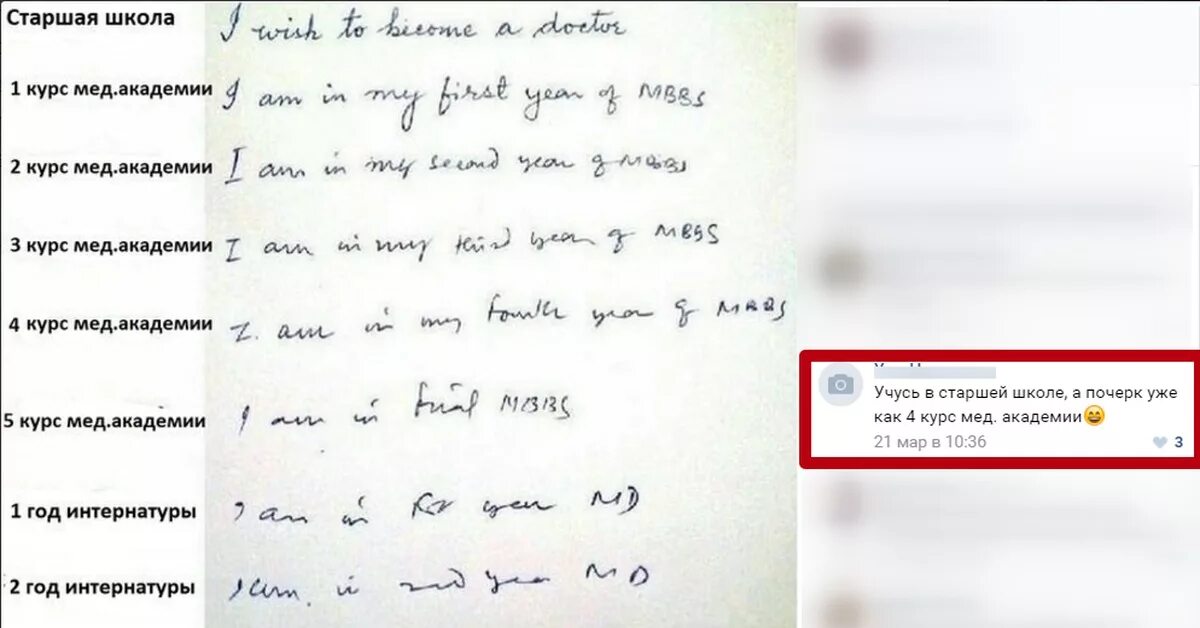 Старшая школа I wish to become a doctor
1 курс мед.академии I am in my first year of MBBS
2 курс мед.академии I am in my second year of MBBS
3 курс мед.академии I am in my third year of MBBS
4 курс мед.академии I am in my fourth year of MBBS
5 курс мед.академии I am in final MBBS
1 год интернатуры I am in year MD
2 год интернатуры I am in 2nd year MD
Учусь в старшей школе, а почерк уже
как 4 курс мед. академии😄
21 мар в 10:36 3